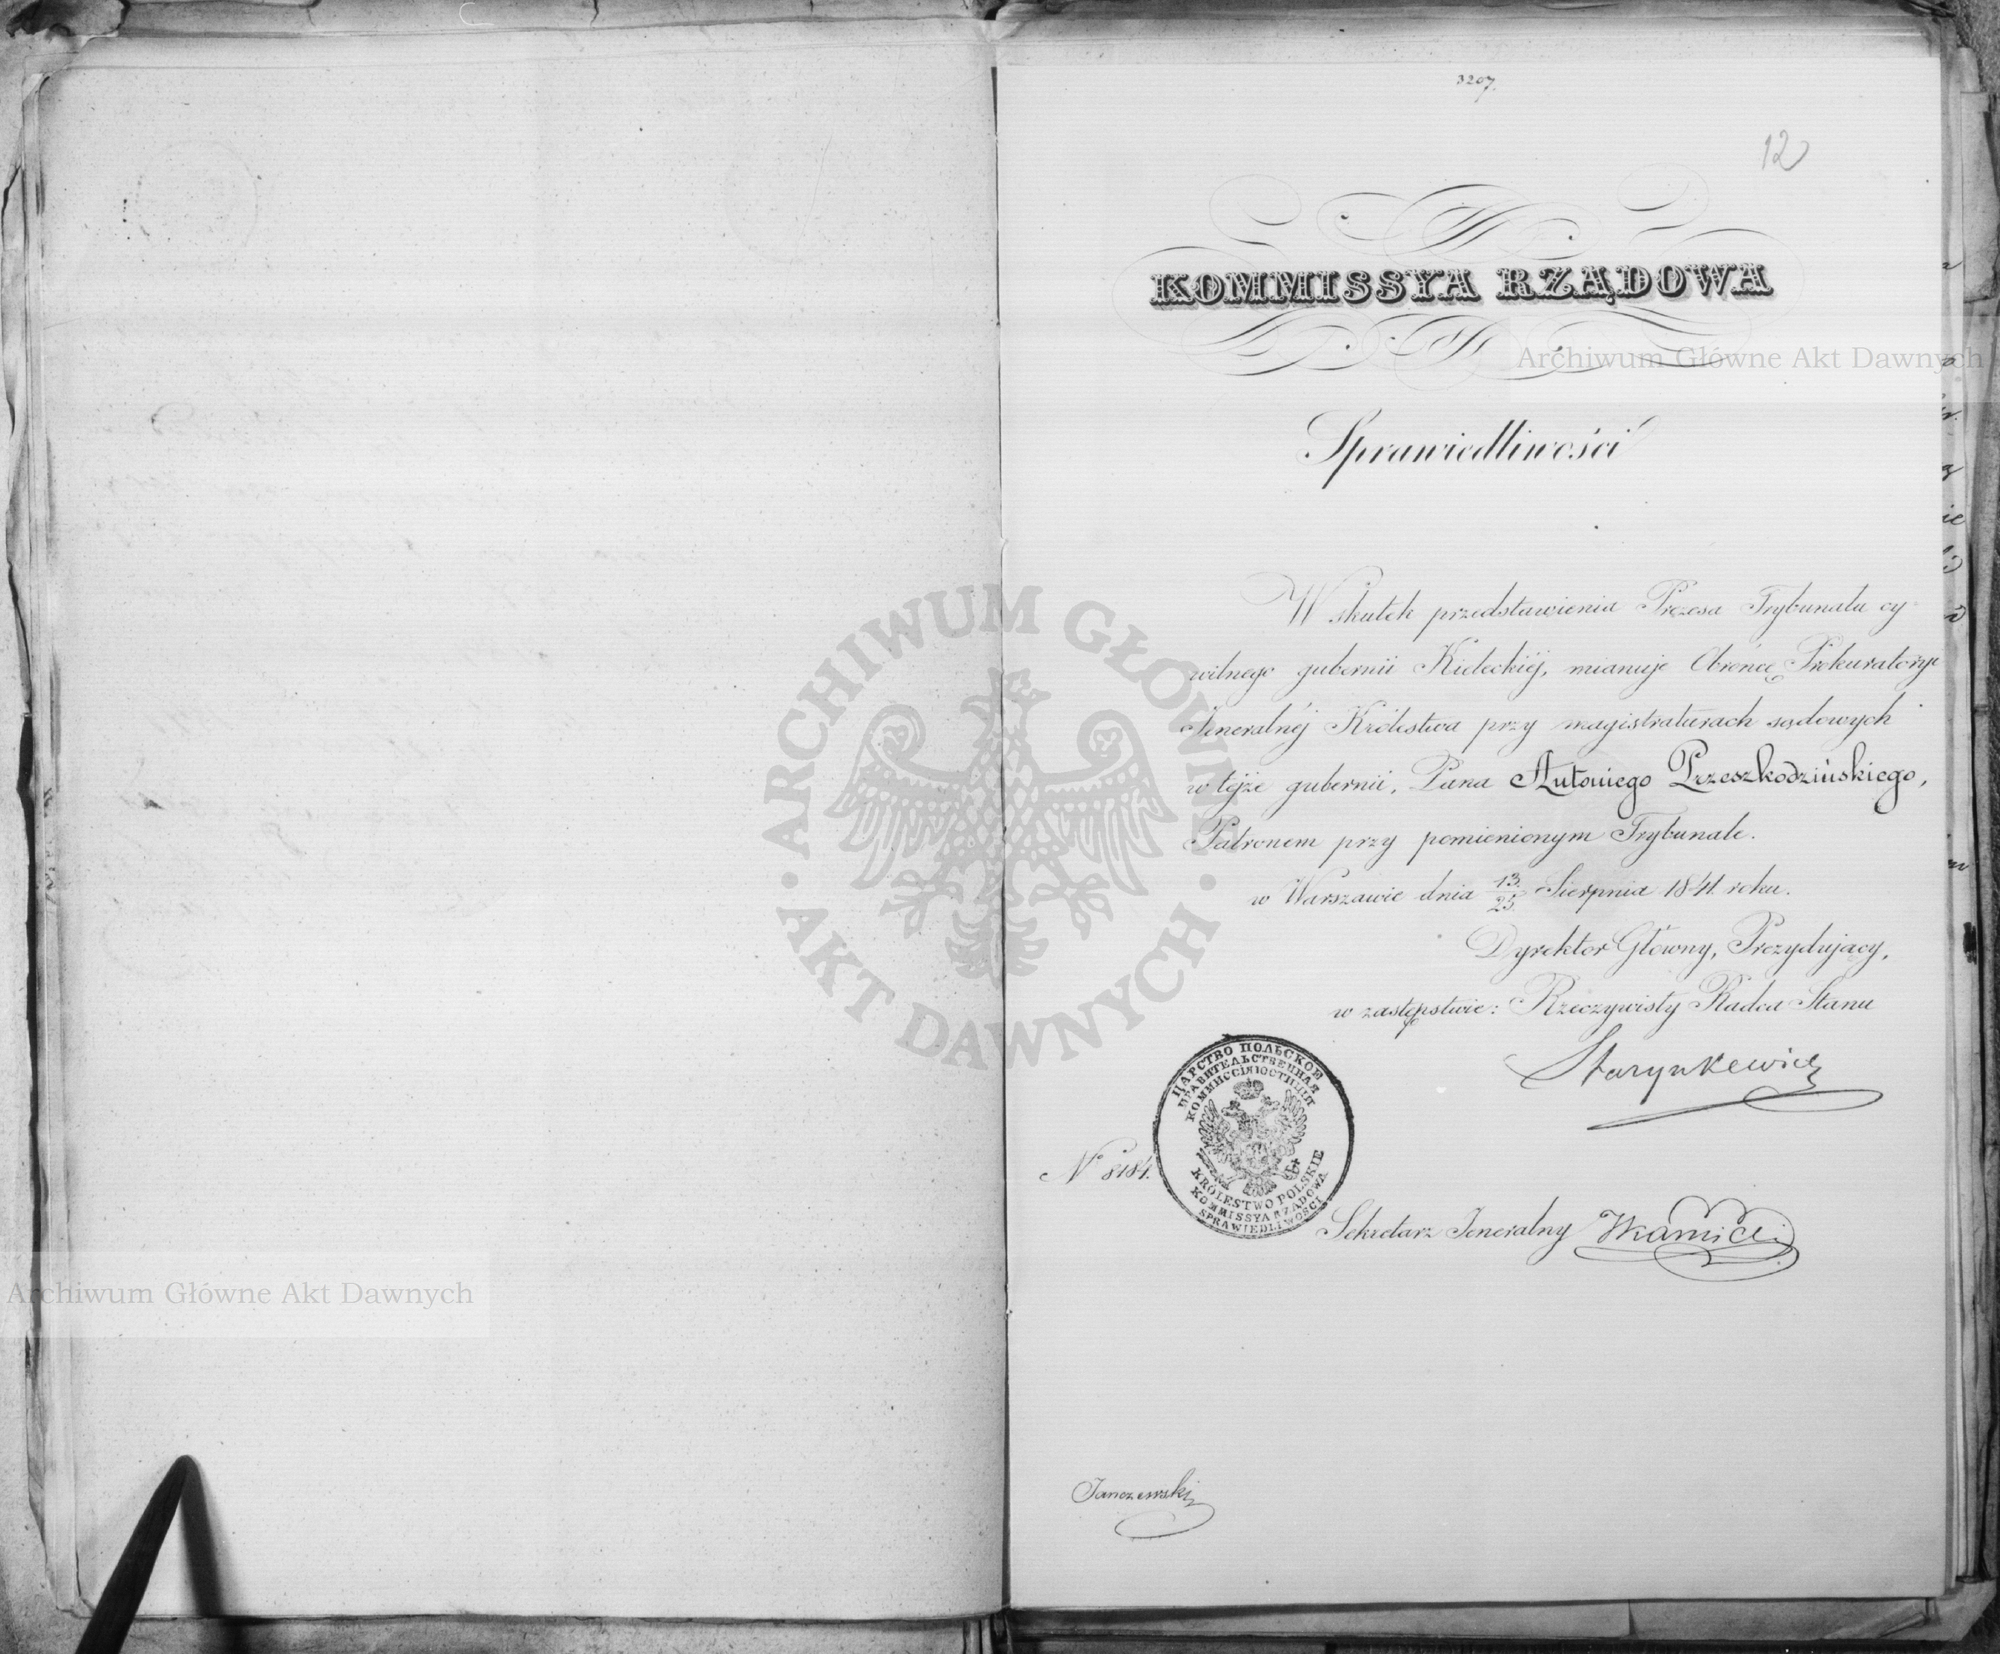 3207.
12
KOMMISSYA RZĄDOWA
Sprawiedliwości
W skutek przedstawienia Prezesa Trybunału cy-
wilnego gubernii Kieleckiéj, mianuje Obrońcę Prokuratoryi
Jeneralnéj Królestwa przy magistraturach sądowych
w téjże gubernii, Pana Antoniego Przeszkodzińskiego,
Patronem przy pomienionym Trybunale.
w Warszawie dnia 13/25 Sierpnia 1841. roku.
Dyrektor Główny, Prezydujący,
w zastępstwie: Rzeczywisty Radca Stanu
Starynkewicz
ЦАРСТВО ПОЛЬСКОЕ
ПРАВИТЕЛЬСТВЕННАЯ
КОММИССІЯ ЮСТИЦІИ
KRÓLESTWO POLSKIE
KOMMISSYA RZĄDOWA
SPRAWIEDLIWOŚCI
N° 8184.
Sekretarz Jeneralny
Janczewski
Archiwum Główne Akt Dawnych
Archiwum Główne Akt Dawnych
ARCHIWUM GŁÓWNE
AKT DAWNYCH